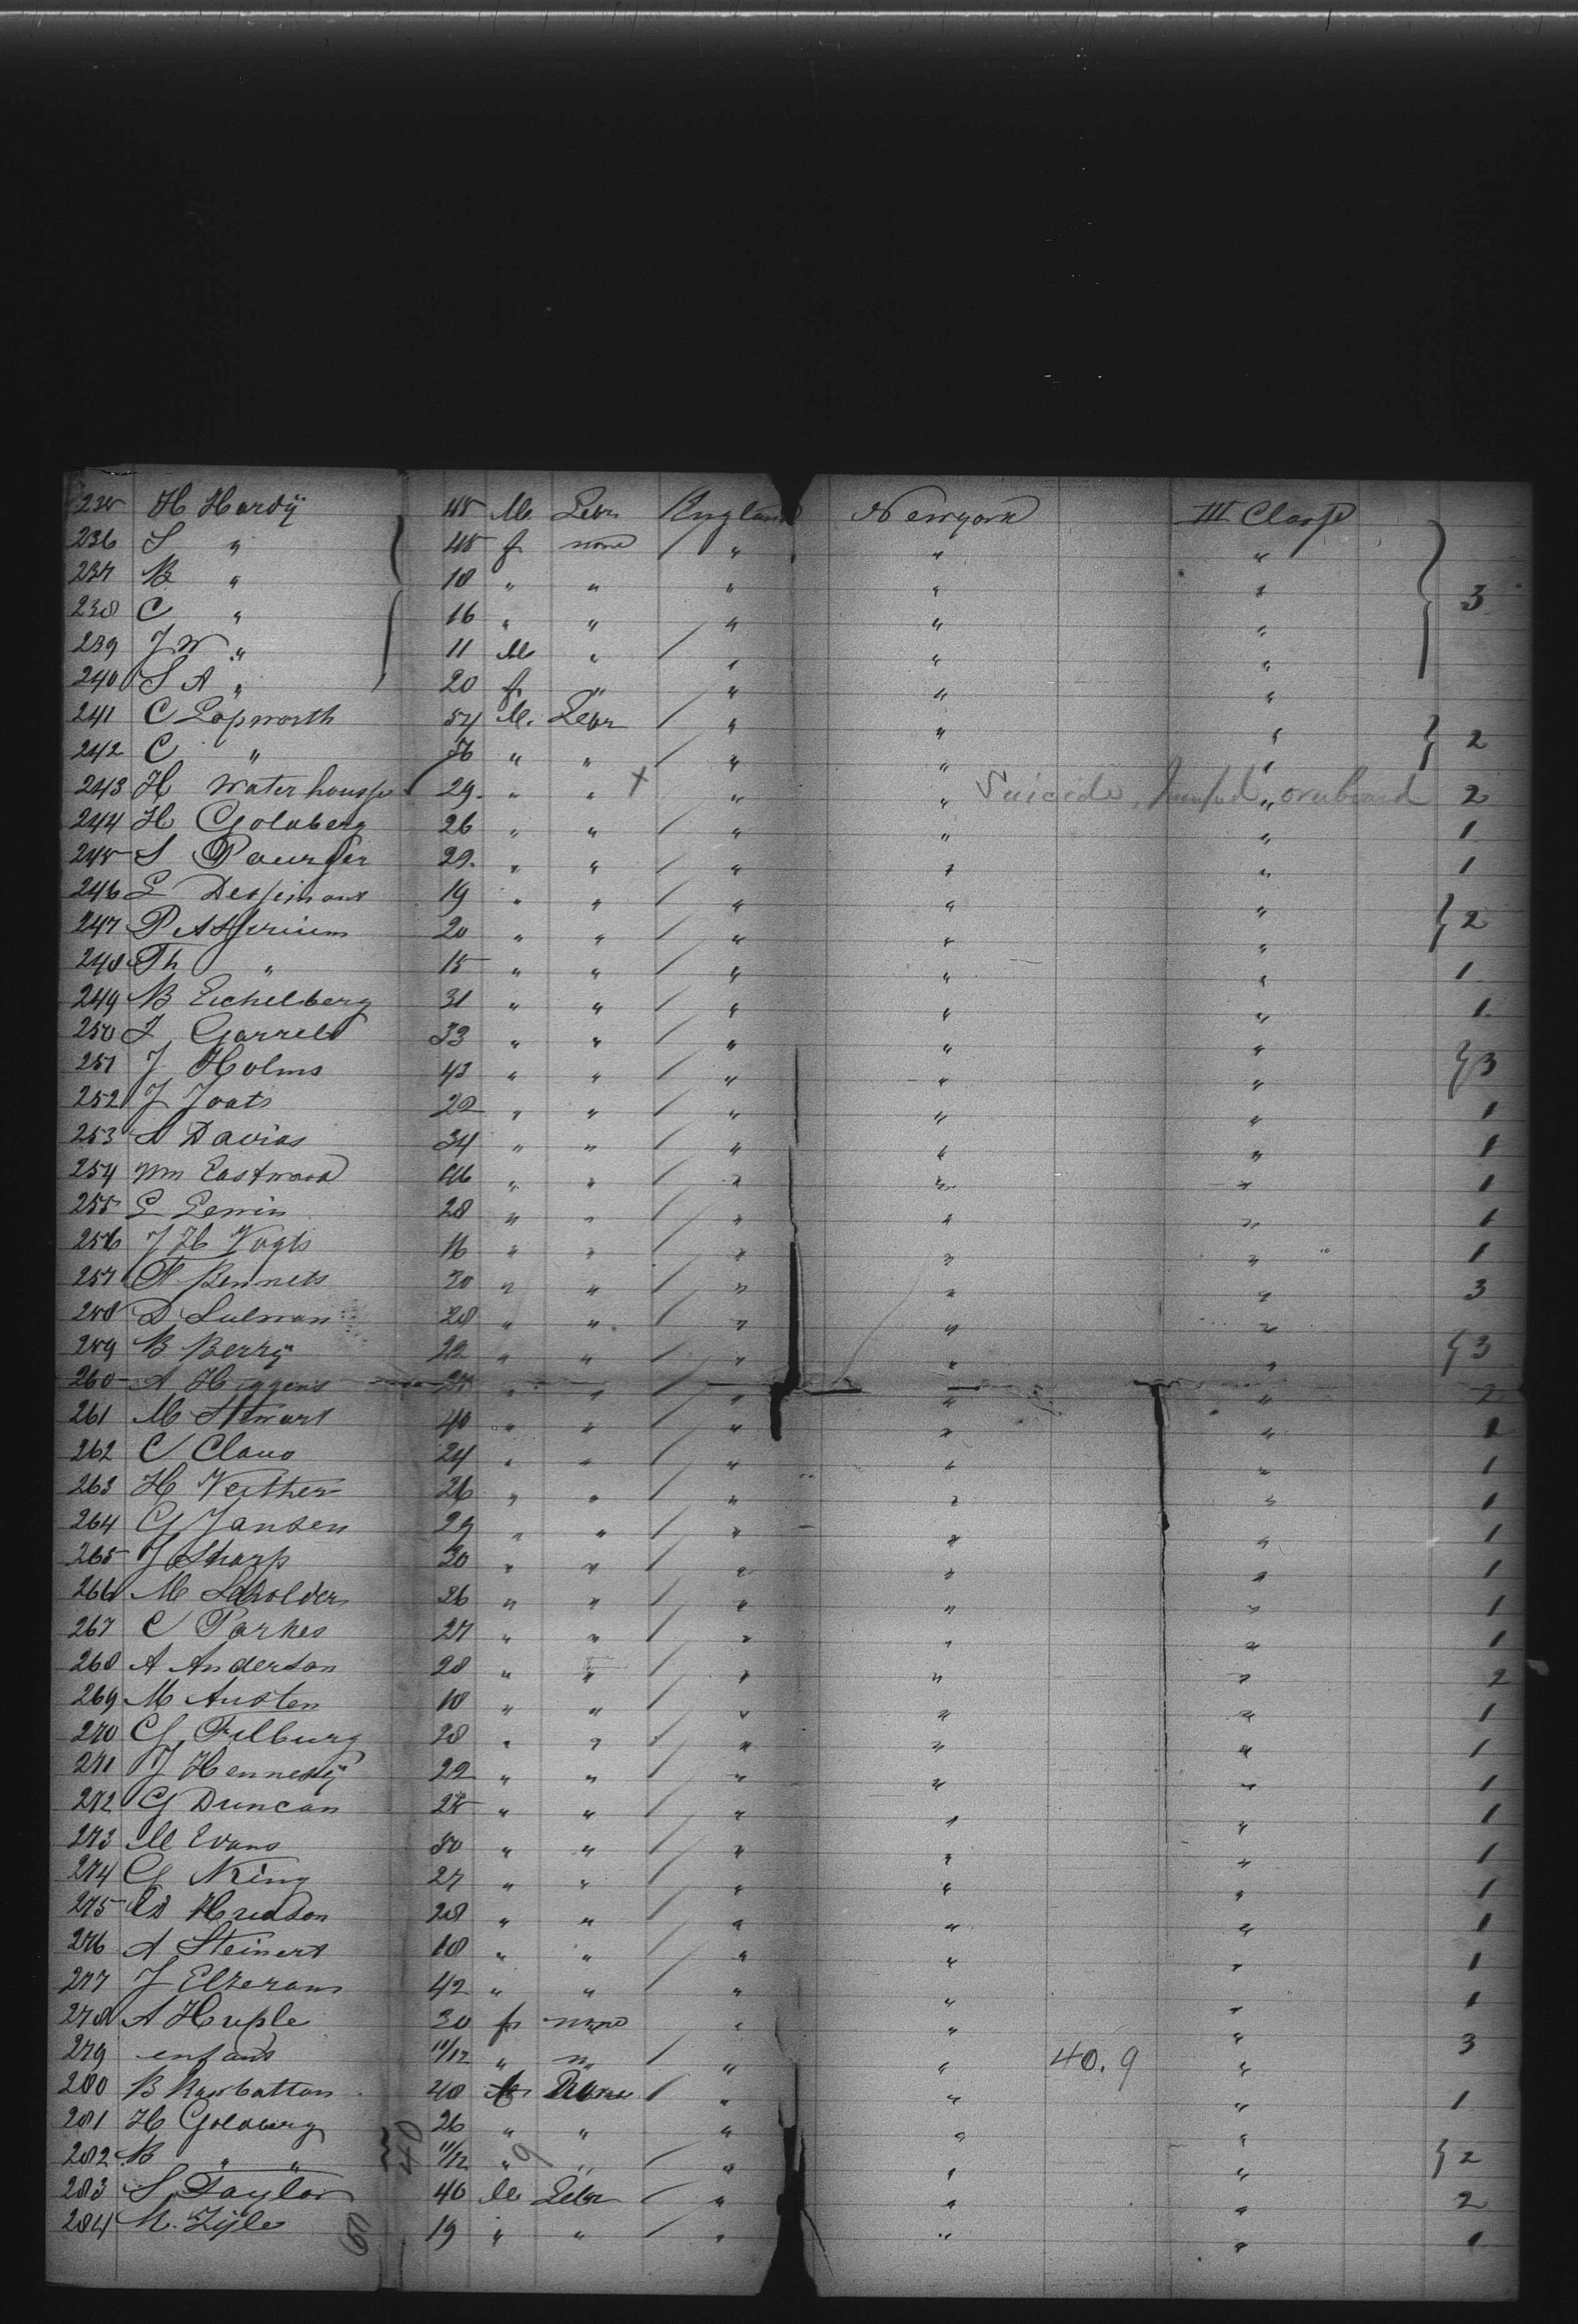 235 H Hardÿ 45 M Lebr England Newyork III Classe
236 S " 45 f none " " "
237 B " 18 " " " " " 3
238 C " 16 " " " " "
239 J W " 11 M " " " "
240 S A " 20 f " " " "
241 C Lapworth 54 M. Lebr " " "
242 C " " " " " " 2
243 H Waterhousse 29. " " + " " Suicide, jumped " overboard 2
244 H Goldberg 26 " " " " " 1
245 S 29. " " " " " 1
246 E 19 " " " " "
247 P 20 " " " " " 2
248 Th " 15 " " " " " 1
249 B Eichelberg 31 " " " " " 1
250 Garrels 33 " " " " "
251 J Holms 43 " " " " " 3
252 J Joats 22 " " " " " 1
253 Davies 34 " " " " " 1
254 Wm Eastwood 46 " " " " " 1
255 28 " " " " " 1
256 J H Vogts 16 " " " " " 1
257 Bennets 20 " " " " " 3
258 D Sulman 28 " " " " "
259 B Berrÿ 22 " " " " " 3
260 A Higgens " " " " " 2
261 M Stewart 40 " " " " " 1
262 C Claus 24 " " " " " 1
263 H Veither 26 " " " " " 1
264 G Jansen 29 " " " " " 1
265 J Sharp 30 " " " " " 1
266 M 26 " " " " " 1
267 C Parkes 27 " " " " " 1
268 A Anderson 28 " " " " " 2
269 M Austen 18 " " " " " 1
270 G Filburg 28 " " " " " 1
271 J Hennesÿ 22 " " " " " 1
272 G Duncan 25 " " " " " 1
273 M Evans 30 " " " " " 1
274 G King 27 " " " " " 1
275 Hudson 28 " " " " " 1
276 A Steinert 18 " " " " " 1
277 J 42 " " " " " 1
278 A Huple 30 f none " " " 3
279 enfant 11/12 " " " " 40.9 "
280 B 48 None " " " 1
281 H Goldberg 26 " " " " "
282 B " " 11/12 " 9 " " " " 2
283 S Taylor 46 M Lebr " " " 2
284 M. Zÿle 19 " " " " " 1
40